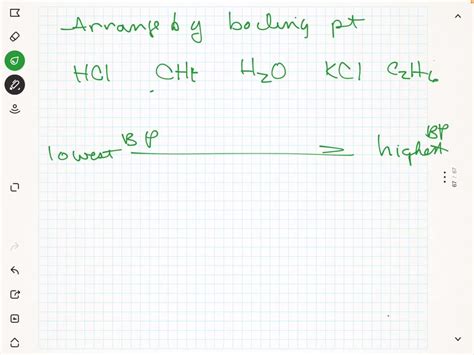 Arrange by boiling pt
HCl CH4 H2O KCl C2H6
lowest BP highest BP
67 / 67